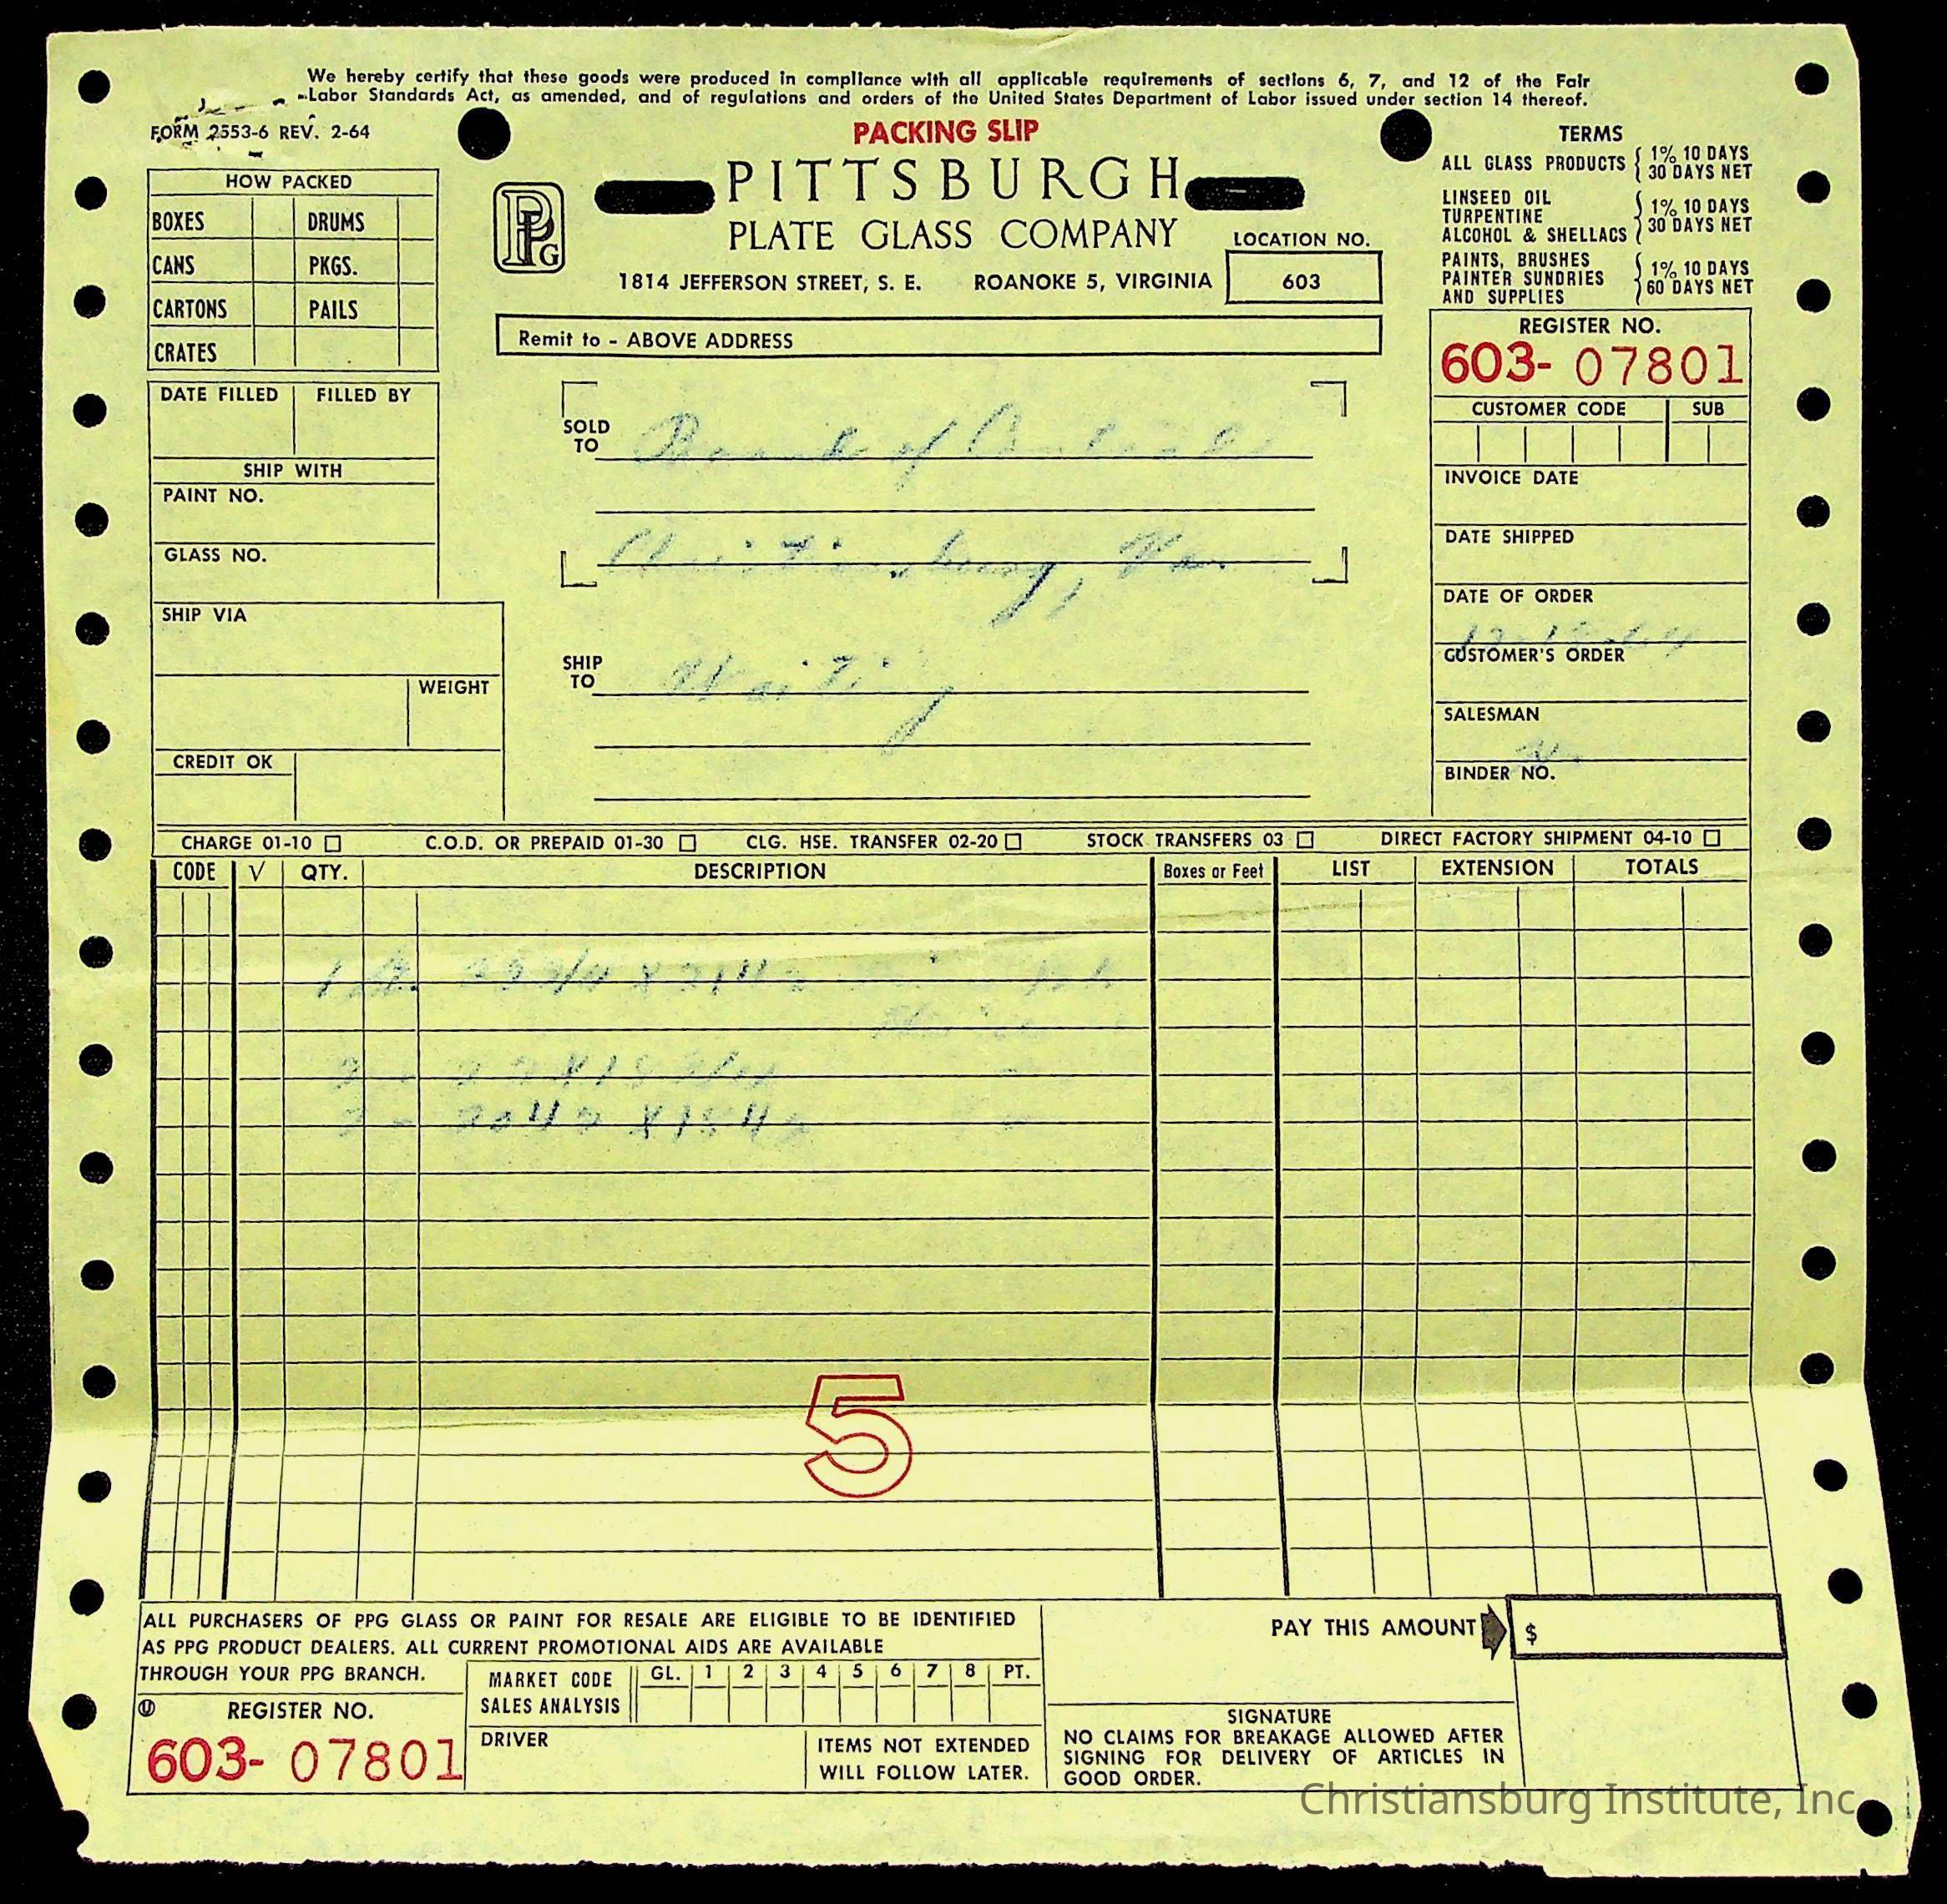 We hereby certify that these goods were produced in compliance with all applicable requirements of sections 6, 7, and 12 of the Fair
Labor Standards Act, as amended, and of regulations and orders of the United States Department of Labor issued under section 14 thereof.
FORM 2553-6 REV. 2-64
PACKING SLIP
PITTSBURGH
PLATE GLASS COMPANY
1814 JEFFERSON STREET, S. E. ROANOKE 5, VIRGINIA
PPG
LOCATION NO.
603
Remit to - ABOVE ADDRESS
TERMS
ALL GLASS PRODUCTS { 1% 10 DAYS
30 DAYS NET
LINSEED OIL
TURPENTINE
ALCOHOL & SHELLACS { 1% 10 DAYS
30 DAYS NET
PAINTS, BRUSHES
PAINTER SUNDRIES
AND SUPPLIES { 1% 10 DAYS
60 DAYS NET
HOW PACKED
BOXES DRUMS
CANS PKGS.
CARTONS PAILS
CRATES
DATE FILLED FILLED BY
SHIP WITH
PAINT NO.
GLASS NO.
SHIP VIA
WEIGHT
CREDIT OK
SOLD
TO Board of
Christiansburg, Va.
SHIP
TO Waiting
REGISTER NO.
603- 07801
CUSTOMER CODE SUB
INVOICE DATE
DATE SHIPPED
DATE OF ORDER
CUSTOMER'S ORDER
SALESMAN
BINDER NO.
CHARGE 01-10 □ C.O.D. OR PREPAID 01-30 □ CLG. HSE. TRANSFER 02-20 □ STOCK TRANSFERS 03 □ DIRECT FACTORY SHIPMENT 04-10 □
CODE √ QTY. DESCRIPTION Boxes or Feet LIST EXTENSION TOTALS
5
ALL PURCHASERS OF PPG GLASS OR PAINT FOR RESALE ARE ELIGIBLE TO BE IDENTIFIED
AS PPG PRODUCT DEALERS. ALL CURRENT PROMOTIONAL AIDS ARE AVAILABLE
THROUGH YOUR PPG BRANCH.
REGISTER NO.
603- 07801
MARKET CODE GL. 1 2 3 4 5 6 7 8 PT.
SALES ANALYSIS
DRIVER
ITEMS NOT EXTENDED
WILL FOLLOW LATER.
PAY THIS AMOUNT $
SIGNATURE
NO CLAIMS FOR BREAKAGE ALLOWED AFTER
SIGNING FOR DELIVERY OF ARTICLES IN
GOOD ORDER.
Christiansburg Institute, Inc